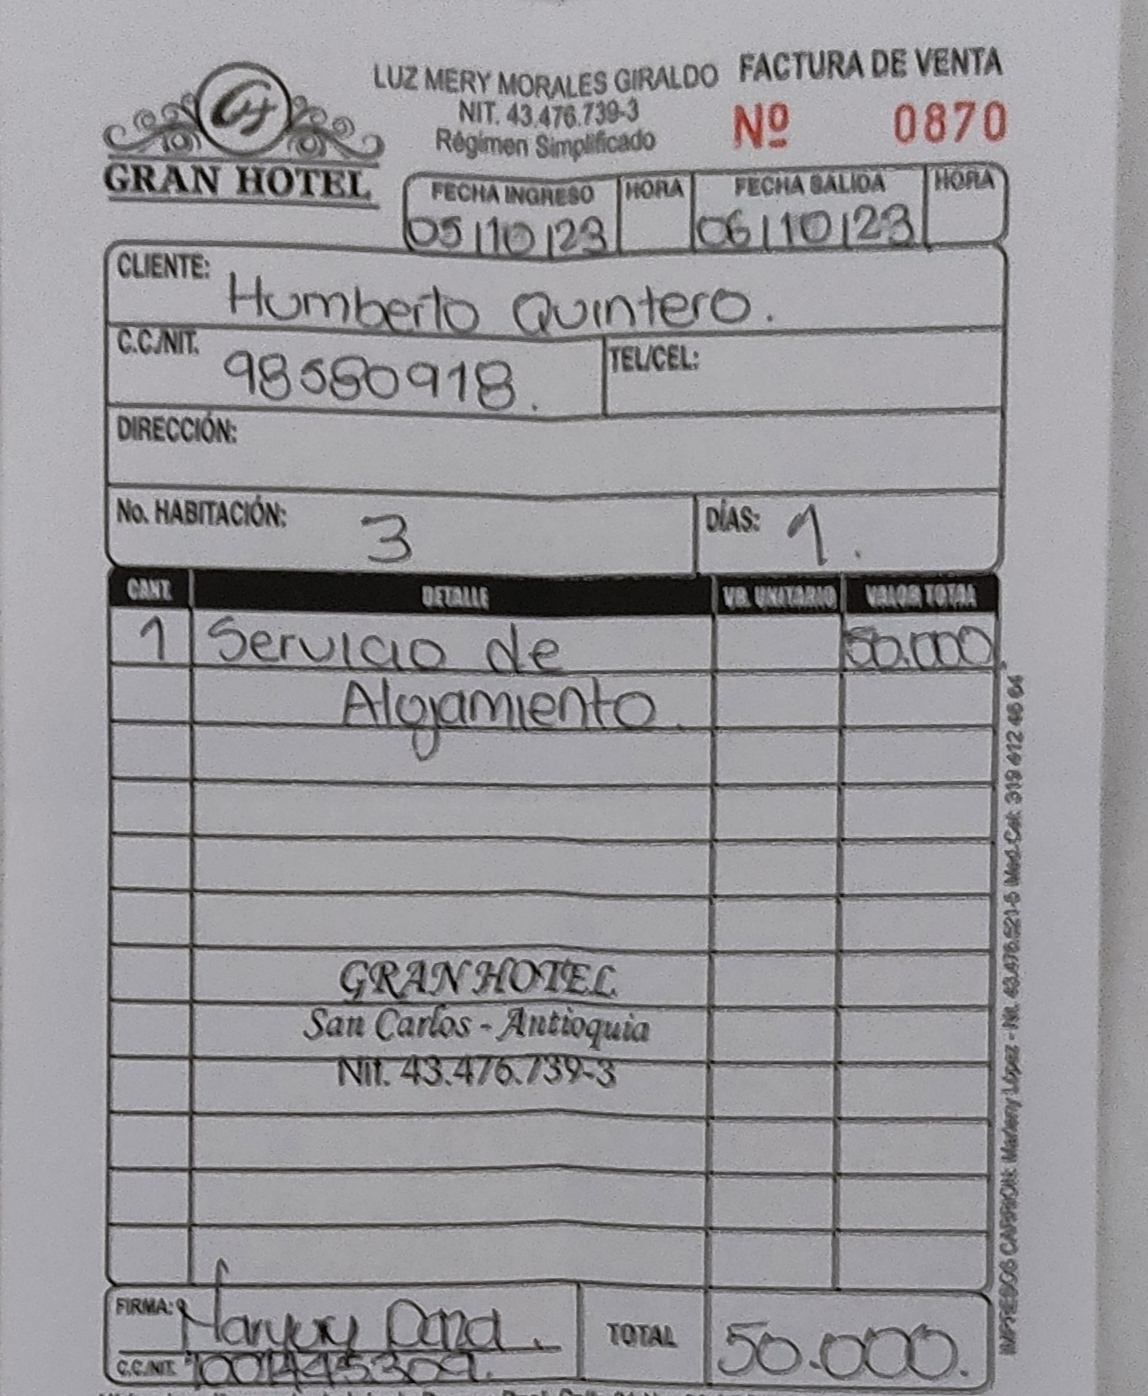 LUZ MERY MORALES GIRALDO
NIT. 43.476.739-3
Régimen Simplificado
FACTURA DE VENTA
Nº 0870
GH
GRAN HOTEL
FECHA INGRESO HORA FECHA SALIDA HORA
05/10/23 06/10/23
CLIENTE: Humberto Quintero.
C.C./NIT. 98580918. TEL/CEL:
DIRECCIÓN:
No. HABITACIÓN: 3 DÍAS: 1.
CANT. DETALLE VR. UNITARIO VALOR TOTAL
1 Servicio de 50.000
Alojamiento.
GRAN HOTEL
San Carlos - Antioquia
Nit. 43.476.739-3
FIRMA:
C.C./NIT.
TOTAL 50.000.
IMPRESOS CARRION: Marleny López - Nit. 43.476.521-5 Med. Cel: 319 412 46 64